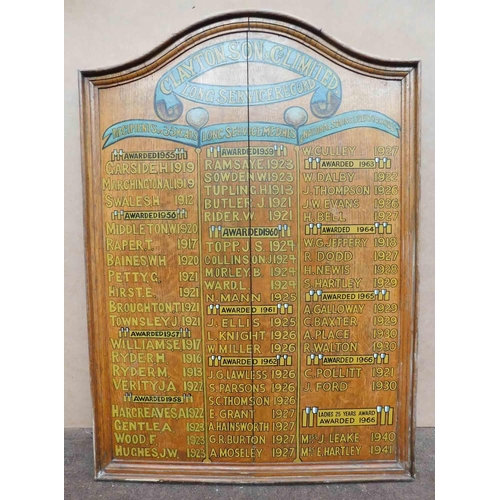 CLAYTON.SON.C.LIMITED
LONG SERVICE RECORD
LONG SERVICE
AWARDED 1955
GARSIDE.H 1919
MARCHINGTON.A.L 1919
SWALES.H. 1912
AWARDED 1956
MIDDLETON.W 1920
RAPER.T. 1917
BAINES.W.H. 1920
PETTY.G. 1921
HIRST.E. 1921
BROUGHTON.T. 1921
TOWNSLEY.J. 1921
AWARDED 1957
WILLIAMS.E 1917
RYDER.H. 1916
RYDER.M. 1913
VERITY.J.A 1922
AWARDED 1958
HARGREAVES.A 1922
GENTLE.A 1923
WOOD.F. 1923
HUGHES.J.W. 1923
AWARDED 1959
RAMSAY.E 1923
SOWDEN.W 1923
TUPLING.H 1913
BUTLER.J. 1921
RIDER.W. 1921
AWARDED 1960
TOPP.J.S. 1924
COLLINSON.J 1924
MORLEY.B. 1924
WARD.L. 1924
N. MANN 1925
AWARDED 1961
J. ELLIS 1925
L. KNIGHT 1926
W. MILLER 1926
AWARDED 1962
J.G. LAWLESS 1926
S. PARSONS 1926
S.C THOMSON 1926
E. GRANT 1927
A. HAINSWORTH 1927
G.R. BURTON 1927
A. MOSELEY 1927
W. CULLEY 1927
AWARDED 1963
W. DALBY 1925
J. THOMPSON 1926
J.W. EVANS 1926
H. BELL 1927
AWARDED 1964
W.G. JEFFERY 1918
R. DODD 1927
H. NEWIS 1928
S. HARTLEY 1929
AWARDED 1965
A. GALLOWAY 1929
C. BAXTER 1929
A. PLACE 1929
R. WALTON 1930
AWARDED 1966
C. POLLITT 1921
J. FORD 1930
LADIES 25 YEARS AWARD
AWARDED 1966
MISS J. LEAKE 1940
MRS E. HARTLEY 1941